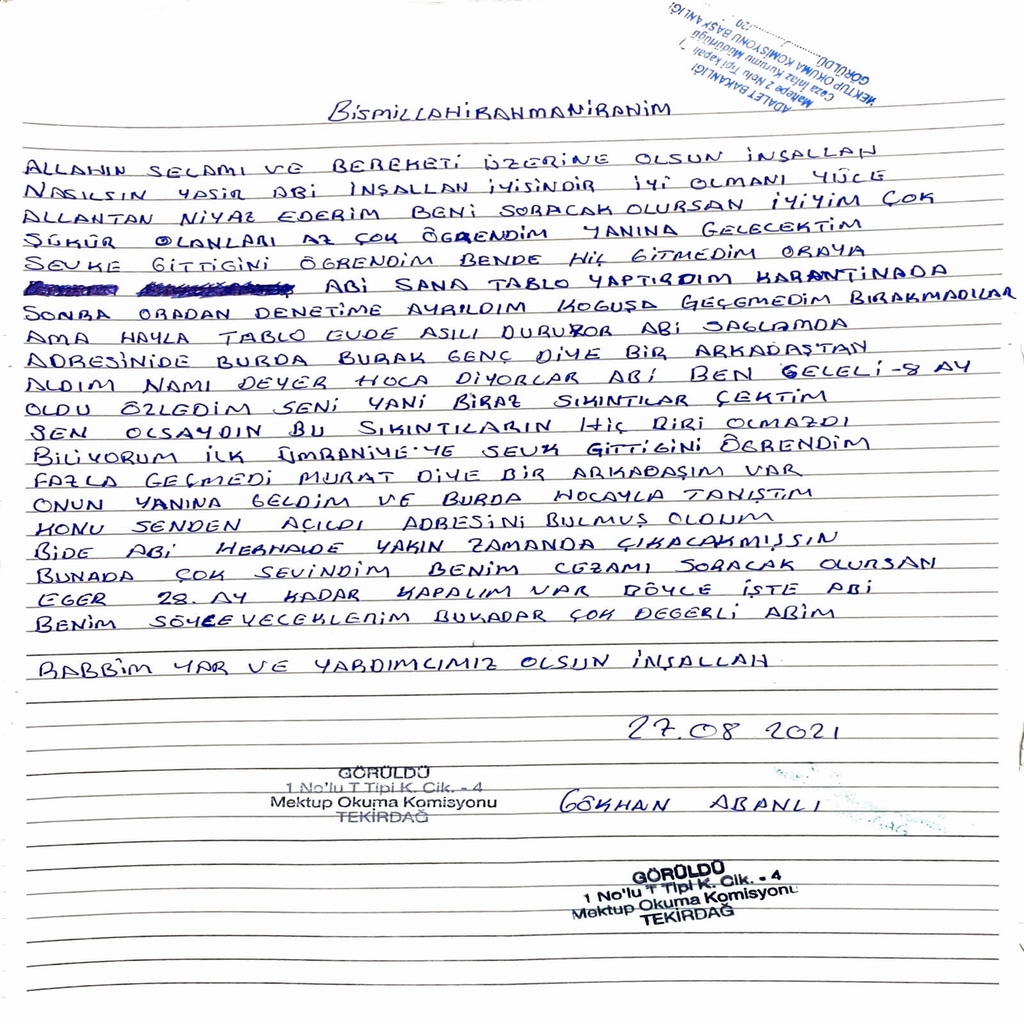 ADALET BAKANLIĞI
Maltepe 2 Nolu Tipi kapalı
Ceza İnfaz Kurumu Müdürlüğü
MEKTUP OKUMA KOMİSYONU BAŞKANLIĞI
GÖRÜLDÜ
BİSMİLLAHİRAHMANİRAHİM
ALLAHIN SELAMI VE BEREKETİ ÜZERİNE OLSUN İNŞALLAH
NASILSIN YASİR ABİ İNŞALLAH İYİSİNDİR İYİ OLMANI YÜCE
ALLAHTAN NİYAZ EDERİM BENİ SORACAK OLURSAN İYİYİM ÇOK
ŞÜKÜR OLANLARI AZ ÇOK ÖGRENDİM YANINA GELECEKTİM
SEVKE GİTTİGİNİ ÖGRENDİM BENDE HİÇ GİTMEDİM ORAYA
ABİ SANA TABLO YAPTIRDIM KARANTİNADA
SONRA ORADAN DENETİME AYRILDIM KOGUŞA GEÇEMEDİM BIRAKMADILAR
AMA HAYLA TABLO EVDE ASILI DURUYOR ABİ SAGLAMDA
ADRESİNİDE BURDA BURAK GENÇ DİYE BİR ARKADAŞTAN
ALDIM NAMI DEYER HOCA DİYORLAR ABİ BEN GELELİ-8 AY
OLDU ÖZLEDİM SENİ YANİ BİRAZ SIKINTILAR ÇEKTİM
SEN OLSAYDIN BU SIKINTILARIN HİÇ BİRİ OLMAZDI
BİLİYORUM İLK ÜMRANİYE'YE SEVK GİTTİGİNİ ÖGRENDİM
FAZLA GEÇMEDİ MURAT DİYE BİR ARKADAŞIM VAR
ONUN YANINA GELDİM VE BURDA HOCAYLA TANIŞTIM
KONU SENDEN AÇILDI ADRESİNİ BULMUŞ OLDUM
BİDE ABİ HERHALDE YAKIN ZAMANDA ÇIKACAKMIŞSIN
BUNADA ÇOK SEVİNDİM BENİM CEZAMI SORACAK OLURSAN
EGER 28. AY KADAR KAPALIM VAR BÖYLE İŞTE ABİ
BENİM SÖYLEYECEKLERİM BUKADAR ÇOK DEGERLİ ABİM
RABBİM YAR VE YARDIMCIMIZ OLSUN İNŞALLAH
27.08 2021
GÖRÜLDÜ
1 No'lu T Tipi K. Cik. - 4
Mektup Okuma Komisyonu
TEKİRDAĞ
GÖKHAN ABANLI
GÖRÜLDÜ
1 No'lu T Tipi K. Cik. - 4
Mektup Okuma Komisyonu
TEKİRDAĞ